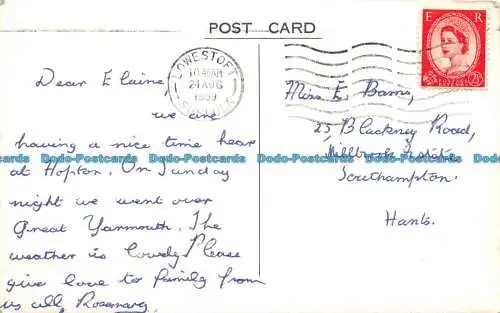 POST CARD
LOWESTOFT
10.45AM
24 AUG
1959
SUFFOLK
E R
POSTAGE REVENUE
2½D
Dear Elaine,
we are
having a nice time hear
at Hopton. On Sunday
night we went over
Great Yarmouth. The
weather is lovely Please
give love to family from
us all, Rosemary.
Miss E. Barris,
25, Blackney Road,
Millbrook Estate
Southampton.
Hants.
Dodo-Postcards Dodo-Postcards Dodo-Postcards Dodo-Postcards
Dodo-Postcards Dodo-Postcards Dodo-Postcards Dodo-Postcards